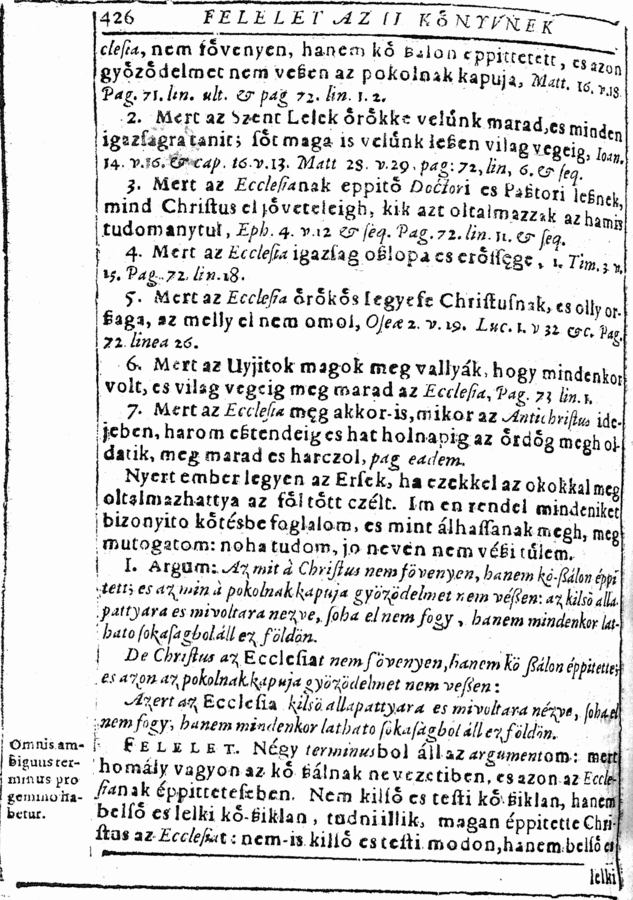 426 FELELET AZ II KŐNYVNEK
clesia, nem fővenyen, hanem kő ßalon eppittetett, es azon
győződelmet nem veßen az pokolnak kapuja, Matt. 16. v.18.
Pag. 71. lin. ult. & pag 72. lin. 1. 2.
2. Mert az Szent Lelek őrőkke velűnk marad, es minden
igazſagra tanit; ſőt maga is velűnk leßen vilag vegeig, Ioan.
14. v.16. & cap. 16. v.13. Matt 28. v.29, pag: 72, lin, 6. & ſeq.
3. Mert az Eccleſianak eppitő Doctori es Paßtori leßnek,
mind Chriſtus el jőveteleigh, kik azt oltalmazzak az hamis
tudomanytul, Eph. 4. v.12 & ſeq. Pag. 72. lin. 11. & ſeq.
4. Mert az Eccleſia igazſag oßlopa es erőſſege, 1. Tim. 3. v.
15. Pag. 72. lin. 18.
5. Mert az Eccleſia őrőkős Iegyeſe Chriſtuſnak, es olly or-
ßaga, az melly el nem omol, Oſeæ 2. v. 19. Luc. 1. v 32 &c. Pag.
72. linea 26.
6. Mert az Uyjitok magok meg vallyák, hogy mindenkor
volt, es vilag vegeig meg marad az Eccleſia, Pag. 73 lin. 1.
7. Mert az Eccleſia meg akkor-is, mikor az Antichriſtus ide-
jeben, harom eßtendeig es hat holnapig az őrdőg megh ol-
datik, meg marad es harczol, pag eadem.
Nyert ember legyen az Erſek, ha ezekkel az okokkal meg
oltalmazhattya az fől tőtt czélt. Im en rendel mindeniket
bizonyito kőtésbe foglalom, es mint álhaſſanak megh, meg
mutogatom: noha tudom, jo neven nem véßi tűlem.
I. Argum: Az mit à Chriſtus nem fövenyen, hanem kö-ßálon éppi
tett; es az min à pokolnak kapuja gyözödelmet nem véßen: az kilsö alla-
pattyara es mivoltara nezve, ſoha el nem fogy, hanem mindenkor lat-
hato ſokaſagbol áll ez földön.
De Chriſtus az Eccleſiat nem fövenyen, hanem kö ßálon éppitette;
es azon az pokolnak kapuja gyözödelmet nem veßen:
Azert az Eccleſia kilsö allapattyara es mivoltara nézve, ſoha el
nem fogy, hanem mindenkor lathato ſokaſagbol áll ez földön.
FELELET. Négy terminusbol áll az argumentom: mert
homály vagyon az kő ßálnak nevezetiben, es azon az Eccle-
ſianak éppitteteſeben. Nem kilſő es teſti kő-ßiklan, hanem
belſő es lelki kő-ßiklan, tudniillik, magan éppitette Chri-
ſtus az Eccleſiat: nem-is killő es teſti modon, hanem belſő es
Omnis am-
biguus ter-
minus pro
gemino ha-
betur.
lelki